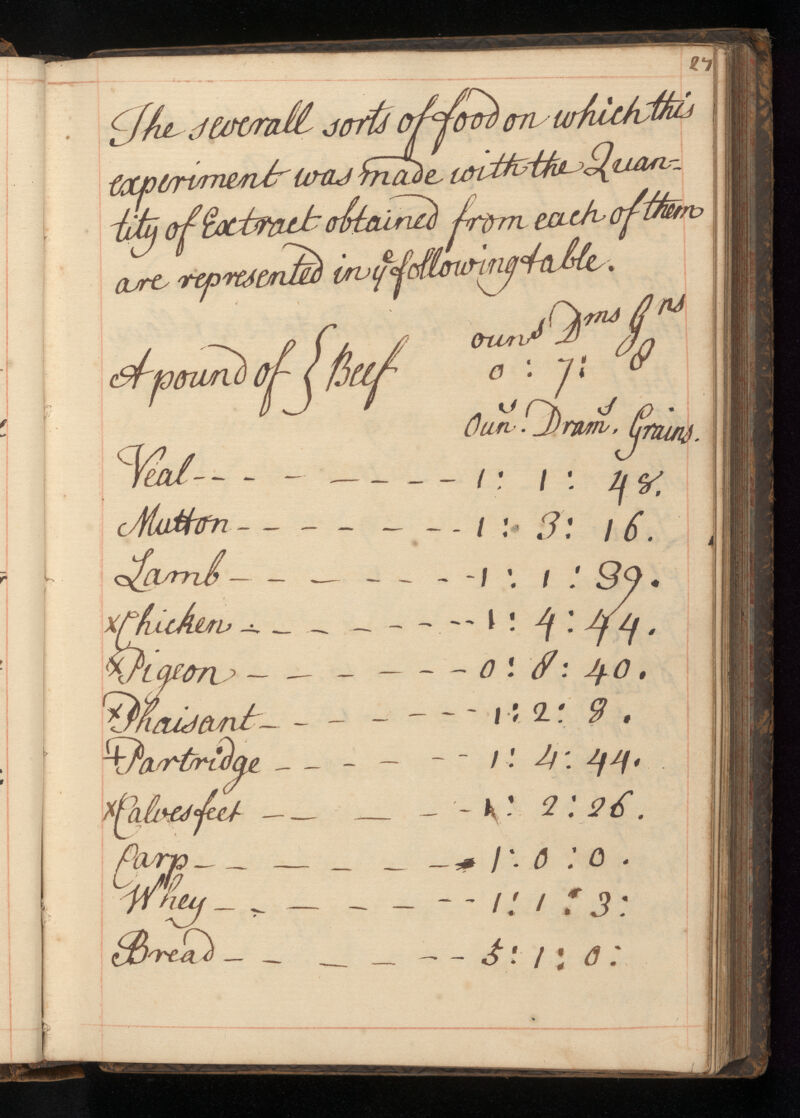 27
The severall sorts of food on which this
experiment was made with the Quan=
tity of Extract obtained from each of them
are represented in ye following table.
ouns Dms Gns
A pound of { Beef 0 : 7 : 8
Ouns. Drams. Grains.
Veal -- - - - - - - - 1 : 1 : 48.
Mutton - - - - - - - 1 : 3 : 16.
Lamb - - - - - - - 1 : 1 : 39.
x Chicken - - - - - - - 1 : 4 : 44.
x Pigeon - - - - - - - 0 : 8 : 40.
x Phaisant - - - - - - - 1 : 2 : 8.
+ Partridge - - - - - - 1 : 4 : 44.
x Calves feet - - - - - 1 : 2 : 26.
Carp - - - - - - 1 : 0 : 0.
Whey - - - - - - - 1 : 1 : 3 :
Bread - - - - - - 5 : 1 : 0 :